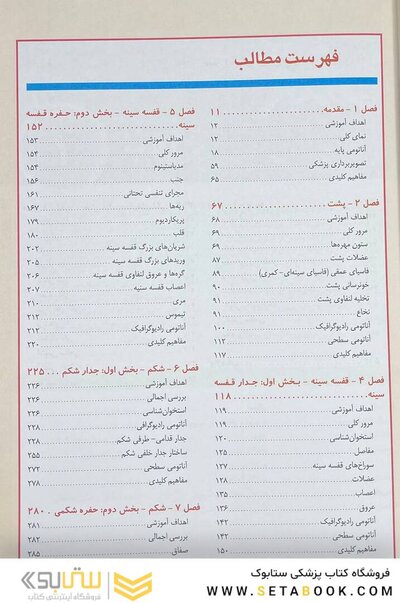 فهرست مطالب
فصل ۱ - مقدمه ۱۱
اهداف آموزشی ۱۲
نمای کلی ۱۲
آناتومی پایه ۱۸
تصویربرداری پزشکی ۵۹
مفاهیم کلیدی ۶۵
فصل ۲ - پشت ۶۷
اهداف آموزشی ۶۸
مرور کلی ۶۹
ستون مهره‌ها ۶۹
عضلات پشت ۸۷
فاسیای عمقی (فاسیای سینه‌ای-کمری) ۸۹
خونرسانی پشت ۹۰
تخلیه لنفاوی پشت ۹۱
نخاع ۹۱
آناتومی رادیوگرافیک ۱۰۰
آناتومی سطحی ۱۱۲
مفاهیم کلیدی ۱۱۷
فصل ۴ - قفسه سینه - بخش اول: جدار قفسه
سینه ۱۱۸
اهداف آموزشی ۱۱۹
مرور کلی ۱۱۹
استخوان‌شناسی ۱۲۰
مفاصل ۱۲۵
سوراخ‌های قفسه سینه ۱۲۷
عضلات ۱۲۸
اعصاب ۱۳۵
عروق ۱۳۶
آناتومی رادیوگرافیک ۱۴۲
آناتومی سطحی ۱۴۲
مفاهیم کلیدی ۱۵۰
فصل ۵ - قفسه سینه - بخش دوم: حفره قفسه
سینه ۱۵۲
اهداف آموزشی ۱۵۳
مرور کلی ۱۵۴
مدیاستینوم ۱۵۴
جنب ۱۵۶
مجرای تنفسی تحتانی ۱۶۱
ریه‌ها ۱۶۷
پریکاردیوم ۱۷۹
قلب ۱۸۰
شریان‌های بزرگ قفسه سینه ۲۰۲
وریدهای بزرگ قفسه سینه ۲۰۵
گره‌ها و عروق لنفاوی قفسه سینه ۲۰۶
اعصاب قفسه سنیه ۲۰۷
مری ۲۱۰
تیموس ۲۱۲
آناتومی رادیوگرافیک ۲۱۲
مفاهیم کلیدی ۲۲۰
فصل ۶ - شکم - بخش اول: جدار شکم ۲۲۵
اهداف آموزشی ۲۲۶
بررسی اجمالی ۲۲۶
استخوان‌شناسی ۲۲۶
آناتومی رادیوگرافی ۲۲۸
جدار قدامی-طرفی شکم ۲۲۸
ساختار جدار خلفی شکم ۲۵۵
آناتومی سطحی ۲۷۲
مفاهیم کلیدی ۲۷۸
فصل ۷ - شکم - بخش دوم: حفره شکمی ۲۸۰
اهداف آموزشی ۲۸۱
بررسی اجمالی ۲۸۲
صفاق ۲۸۵
ستابوک
فروشگاه اینترنتی کتاب
فروشگاه کتاب پزشکی ستابوک
WWW.SETABOOK.COM